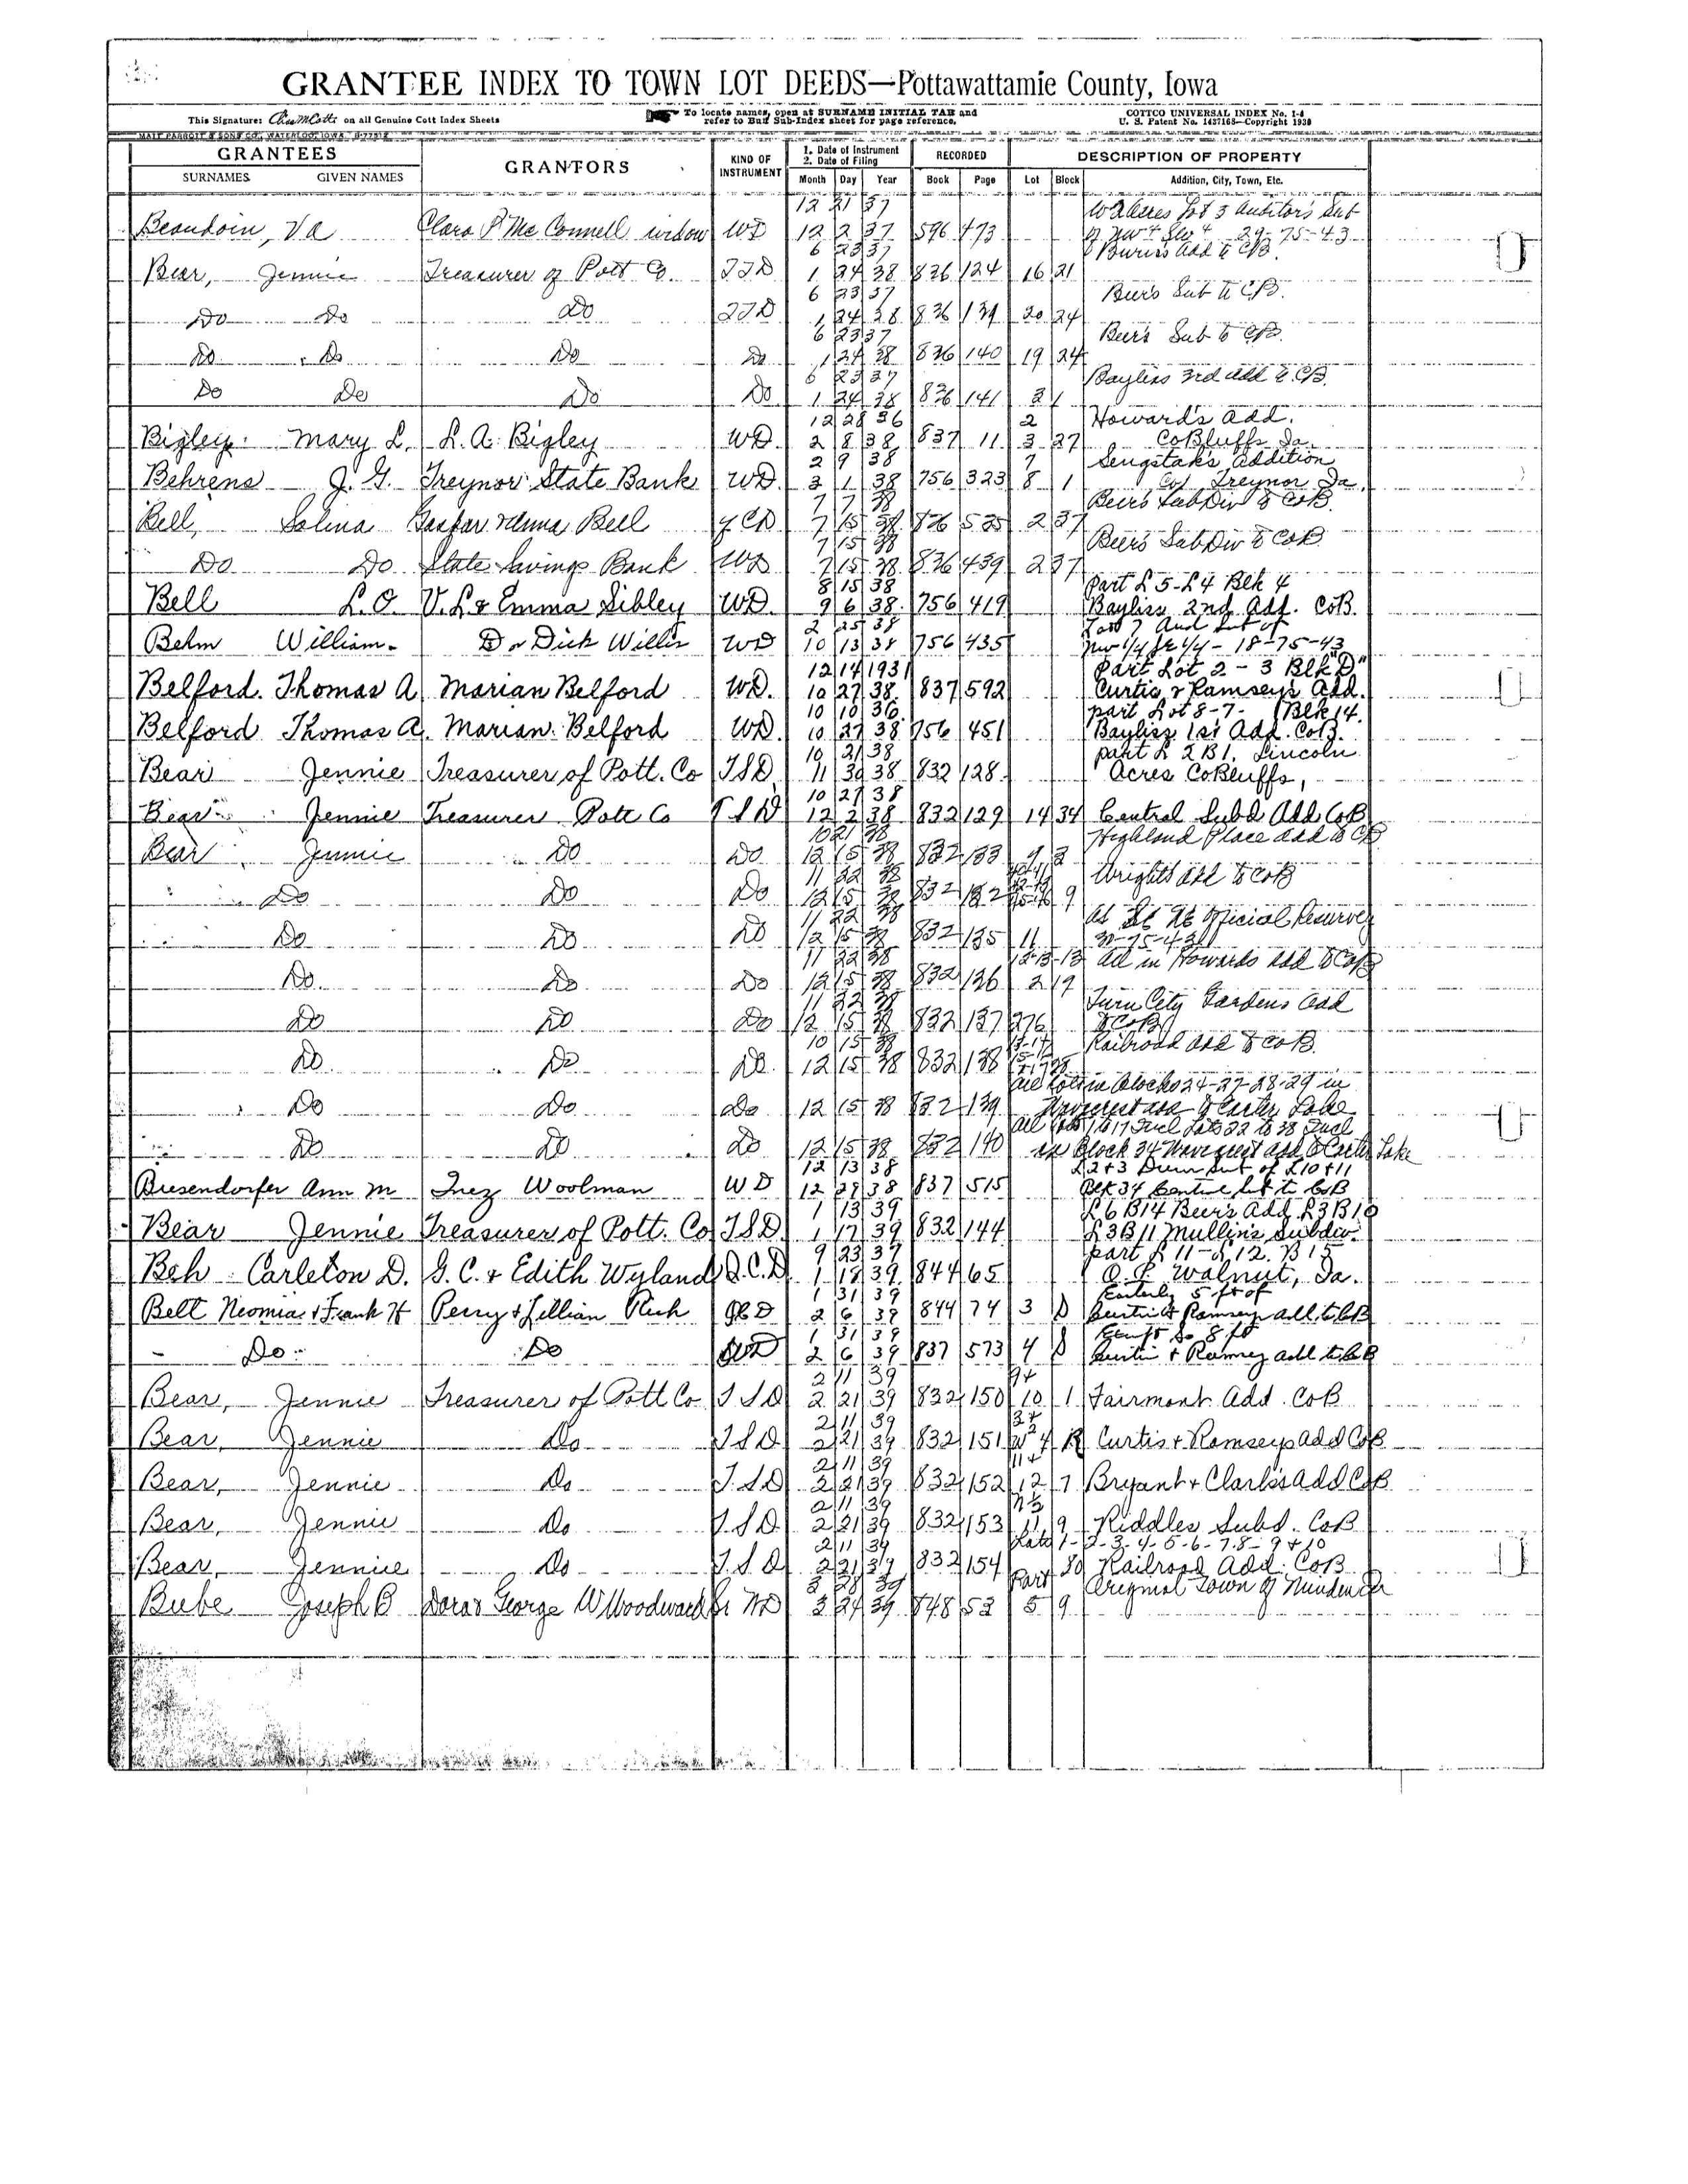 GRANTEE INDEX TO TOWN LOT DEEDS—Pottawattamie County, Iowa
This Signature: on all Genuine Cott Index Sheets
To locate names, open at SURNAME INITIAL TAB and
refer to Buff Sub-Index sheet for page reference.
COTTCO UNIVERSAL INDEX No. 1-4
U. S. Patent No. 1437168—Copyright 1930
MATT PARROTT & SONS CO., WATERLOO, IOWA
GRANTEES
SURNAMES GIVEN NAMES
GRANTORS
KIND OF INSTRUMENT
1. Date of Instrument
2. Date of Filing
Month Day Year
RECORDED
Book Page
DESCRIPTION OF PROPERTY
Lot Block Addition, City, Town, Etc.
12 21 37 Lot 3 Auditor's Sub
Beaudoin, Va Clara P McConnell widow WD 12 2 37 596 473 29-75-43
6 23 37 Add to CB.
Bear, Jennie Treasurer of Pott Co. TTD 1 24 38 836 124 16 21
6 23 37 Beers Sub to CB.
Do Do Do TTD 1 24 38 836 139 20 24
6 23 37 Beers Sub to CB.
Do Do Do Do 1 24 38 836 140 19 24
6 23 37 Bayliss 3rd Add to CB.
Do Do Do Do 1 24 38 836 141
12 28 36 2 Howard's Add.
Bigley. Mary L. L. A. Bigley WD. 2 8 38 837 11 3 27 CoBluffs Ia.
2 9 38 7 Sengstak's Addition
Behrens J. G. Treynor State Bank WD. 3 1 38 756 323 8 1 Treynor Ia.
7 7 38 Beers SubDiv to CoB.
Bell, Salina Bell QCD 7 15 38 836 525 2 37
7 15 38 Beers SubDiv to CoB
Do Do State Savings Bank WD 7 15 38 836 439 2 37
8 15 38 Part L 5-L4 Blk 4
Bell L. O. V. L & Emma Sibley WD. 9 6 38. 756 419 Bayliss 2nd Add. CoB.
2 25 38 Lot 7 Aud Sub of
Behm William. D or Dick Willis WD 10 13 38 756 435 NW 1/4 1/4 - 18-75-43
12 14 1931 Part Lot 2-3 Blk "D"
Belford. Thomas A. Marian Belford WD. 10 27 38. 837 592 Curtis & Ramseys Add.
10 10 36. part Lot 8-7- Blk 14.
Belford Thomas A. Marian. Belford WD. 10 27 38 756 451 Bayliss 1st Add. CoB.
10 21 38 part L 2 B1. Lincoln
Bear Jennie Treasurer of Pott. Co TSD 11 30 38 832 128. Acres CoBluffs,
10 21 38
Bear Jennie Treasurer Pott Co TSD 12 2 38 832 129 14 34 Central Subd Add CoB
10 21 38 Highland Place Add to CB
Bear Jennie Do Do 12 15 38 832 133 9 3
11 22 38 Wrights Add to CoB
Do Do Do 12 15 38 832 132 9
11 22 38 Official Reserve
Do Do Do 12 15 38 832 135 11 31-75-43
11 22 38 12-13-13 all in Howards Add to CoB
Do Do Do 12 15 38 832 136 2 19
11 22 38 Twin City Gardens Add
Do Do Do 12 15 38 832 137 276 to CoB
10 15 38 Railroad Add to CoB.
Do Do Do. 12 15 38 832 138
All Lots in Blocks 24-27-28-29 in
Do Do Do 12 15 38 832 139 Add to Carter Lake
All Lots 1 to 17 Incl Lots 22 to 38 Incl
Do Do Do 12 15 38 832 140 in Block 34 Add to Carter Lake
12 13 38 L 2+3 sub of L10+11
Biesendorfer Ann M Inez Woolman WD 12 29 38 837 515 Blk 34 Central Sub to CoB
1 13 39 L 6 B14 Beers Add. L3 B10
Bear Jennie Treasurer of Pott. Co TSD. 1 17 39 832 144 L3 B11 Mullins Subdiv.
9 23 37 part L 11-L.12. B 15
Beh Carleton D. G. C. & Edith Wyland Q.C.D. 1 18 39. 844 65 O. P. Walnut, Ia.
1 31 39 Easterly 5 ft of
Belt Neomia & Frank H Perry & Lillian Rich QCD 2 6 39 844 74 3 D Curtis & Ramsey add to CB
1 31 39 So 8 ft
Do Do WD 2 6 39 837 573 4 D Curtis & Ramsey add to CB
2 11 39 9+
Bear, Jennie Treasurer of Pott Co TSD 2 21 39 832 150 10 1 Fairmont Add. CoB
2 11 39 3+
Bear, Jennie Do TSD 2 21 39 832 151 Curtis & Ramseys Add CoB
2 11 39 11+
Bear, Jennie Do TSD 2 21 39 832 152 12 7 Bryant & Clark's Add CoB
2 11 39
Bear, Jennie Do TSD 2 21 39 832 153 11 9 Riddles Subd. CoB
2 11 39 Lots 1-2-3-4-5-6-7-8-9+10
Bear, Jennie Do TSD 2 21 39 832 154 80 Railroad Add. CoB
39 Part Original Town of Minden Ia
Bube Joseph B Dora & George W Woodward WD 3 24 39 848 53 5 9